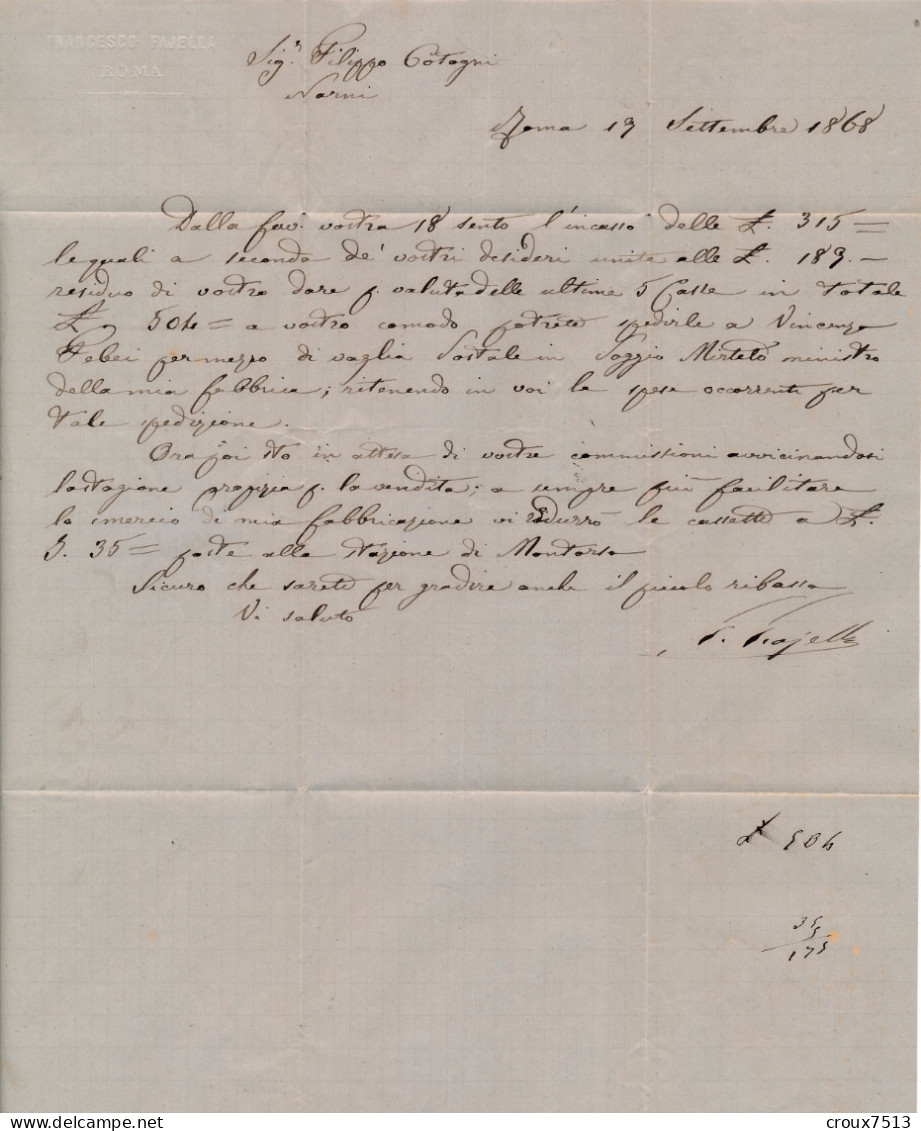 FRANCESCO FAJELLA
ROMA
Sigr. Filippo Cotogni
Narni
Roma 19 Settembre 1868
Dalla fav. vostra 18 sento l'incasso delle £. 315=
le quali a seconda de' vostri desideri unite alle £. 189.-
residuo di vostro dare p. valuta delle ultime 5 Casse in totale
£ 504= a vostro comodo potrete spedirle a Vincenzo
Febei per mezzo di vaglia Postale in Poggio Mirteto ministro
della mia fabbrica; ritenendo in voi le spese occorrenti per
tale spedizione.
Ora poi sto in attesa di vostre commissioni avvicinandosi
la stagione propizia p. la vendita; a sempre più facilitare
lo smercio di mia fabbricazione vi ridurrò le cassette a £.
35= poste alla stazione di Montorso
Sicuro che sarete per gradire anche il piccolo ribasso
Vi saluto
F. Fajella
£ 504
35
5
175
croux7513